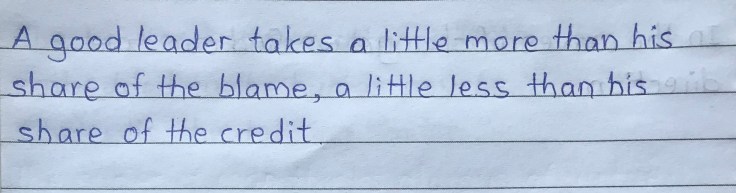 A good leader takes a little more than his
share of the blame, a little less than his
share of the credit.